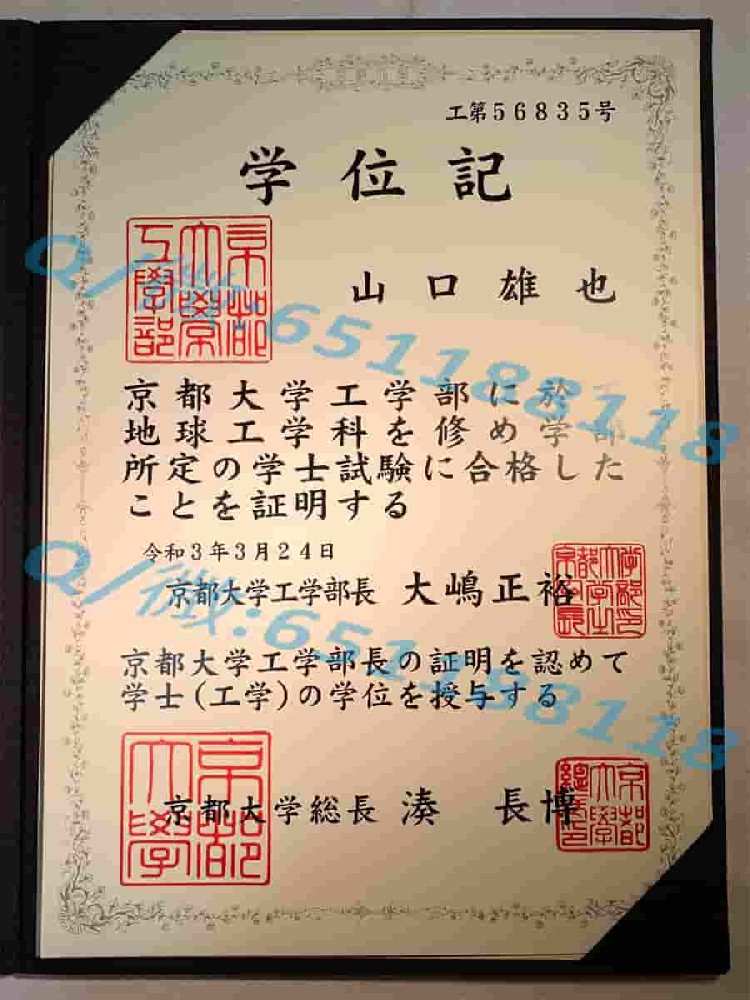 工第56835号
学位記
山口雄也
京都大学工学部
京都大学工学部に於て
地球工学科を修め学部
所定の学士試験に合格した
ことを証明する
令和3年3月24日
京都大学工学部長 大嶋正裕
京都大学工学部長の証明を認めて
学士(工学)の学位を授与する
京都大学総長 湊 長博
京都大學
Q/微:651188118
Q/微:651188118